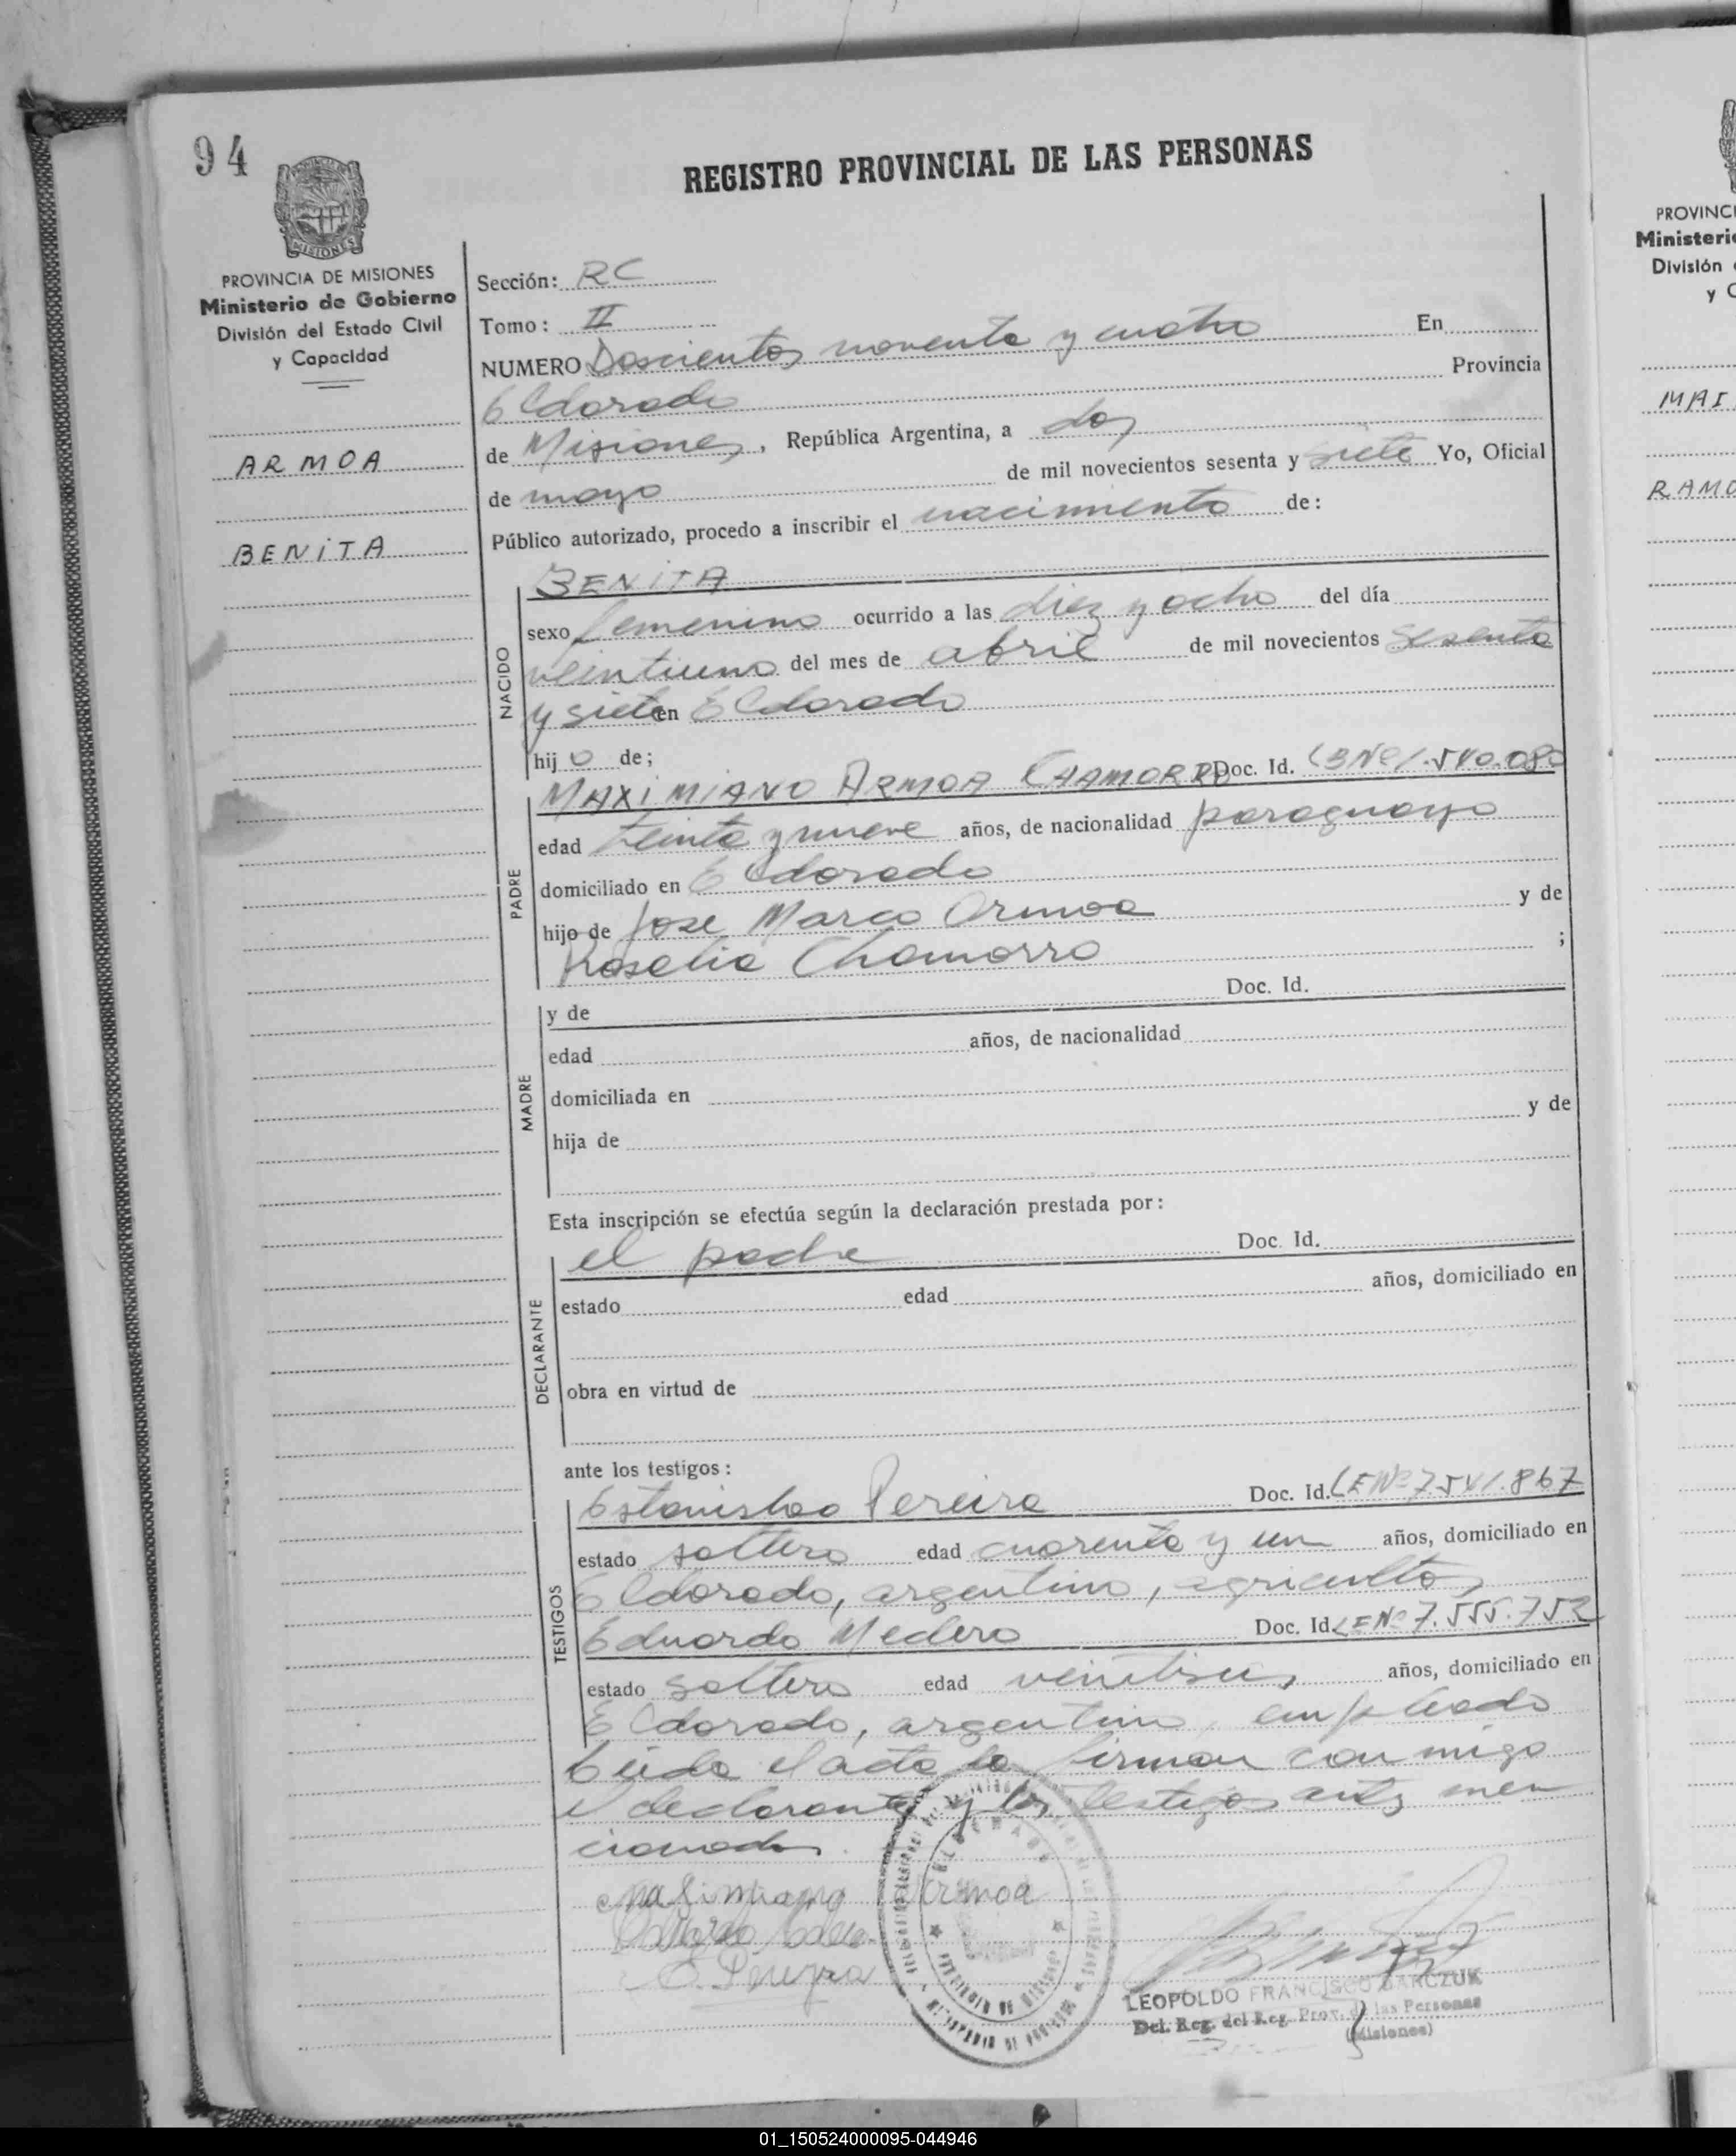 94
REGISTRO PROVINCIAL DE LAS PERSONAS
MISIONES
PROVINCIA DE MISIONES
Ministerio de Gobierno
División del Estado Civil
y Capacidad
ARMOA
BENITA
Sección: RC
Tomo: II
NUMERO Doscientos noventa y cuatro En
Eldorado Provincia
de Misiones, República Argentina, a dos
de mayo de mil novecientos sesenta y siete Yo, Oficial
Público autorizado, procedo a inscribir el nacimiento de:
NACIDO
BENITA
sexo femenino ocurrido a las diez y ocho del día
veintiuno del mes de abril de mil novecientos sesenta
y siete en Eldorado
hij o de;
PADRE
MAXIMIANO ARMOA CHAMORRO Doc. Id.
edad treinta y nueve años, de nacionalidad paraguayo
domiciliado en Eldorado
hijo de Jose Marco Armoa y de
Rosalia Chamorro ;
MADRE
y de Doc. Id.
edad años, de nacionalidad
domiciliada en
hija de y de
Esta inscripción se efectúa según la declaración prestada por:
DECLARANTE
el padre Doc. Id.
estado edad años, domiciliado en
obra en virtud de
ante los testigos:
TESTIGOS
Estanislao Pereira Doc. Id. LE Nº 7.541.867
estado soltero edad cuarenta y un años, domiciliado en
Eldorado, argentino, agricultor
Eduardo Medero Doc. Id. LE Nº 7.555.752
estado soltero edad años, domiciliado en
Eldorado, argentino, empleado
Leida el acta la firman con migo
el declarante y los testigos antes men
cionados.
Maximiano Armoa
E. Pereyra
LEOPOLDO FRANCISCO
Del. Reg. del Reg. Prov. de las Personas
(Misiones)
PROVINCI
Ministeri
División
y C
MAI
RAMO
01_150524000095-044946